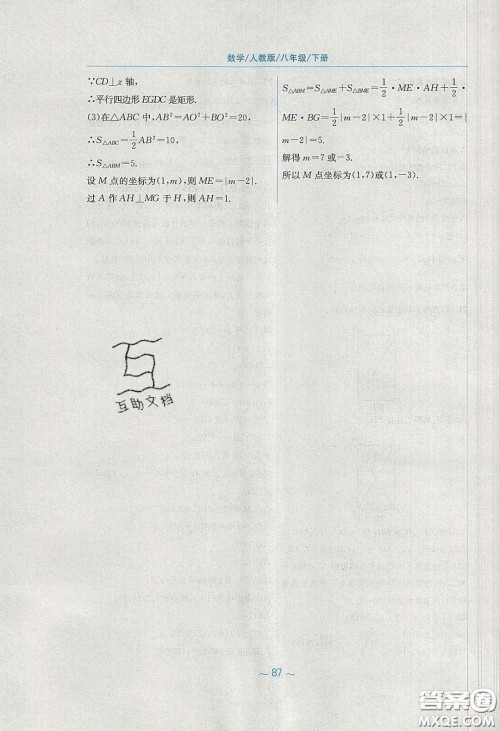 数学/人教版/八年级/下册
∵CD⊥x 轴,
∴平行四边形 EGDC 是矩形.
(3)在△ABC 中,AB²=AO²+BO²=20,
∴S△ABC=1/2AB²=10,
∴S△ABM=5.
设 M 点的坐标为(1,m),则 ME=|m-2|.
过 A 作 AH⊥MG 于 H,则 AH=1.
S△ABM=S△AME+S△BME=1/2·ME·AH+1/2·
ME·BG=1/2|m-2|×1+1/2|m-2|×1=|
m-2|=5.
解得 m=7 或-3.
所以 M 点坐标为(1,7)或(1,-3).
互助文档
~ 87 ~
答案圈
MXQE.COM